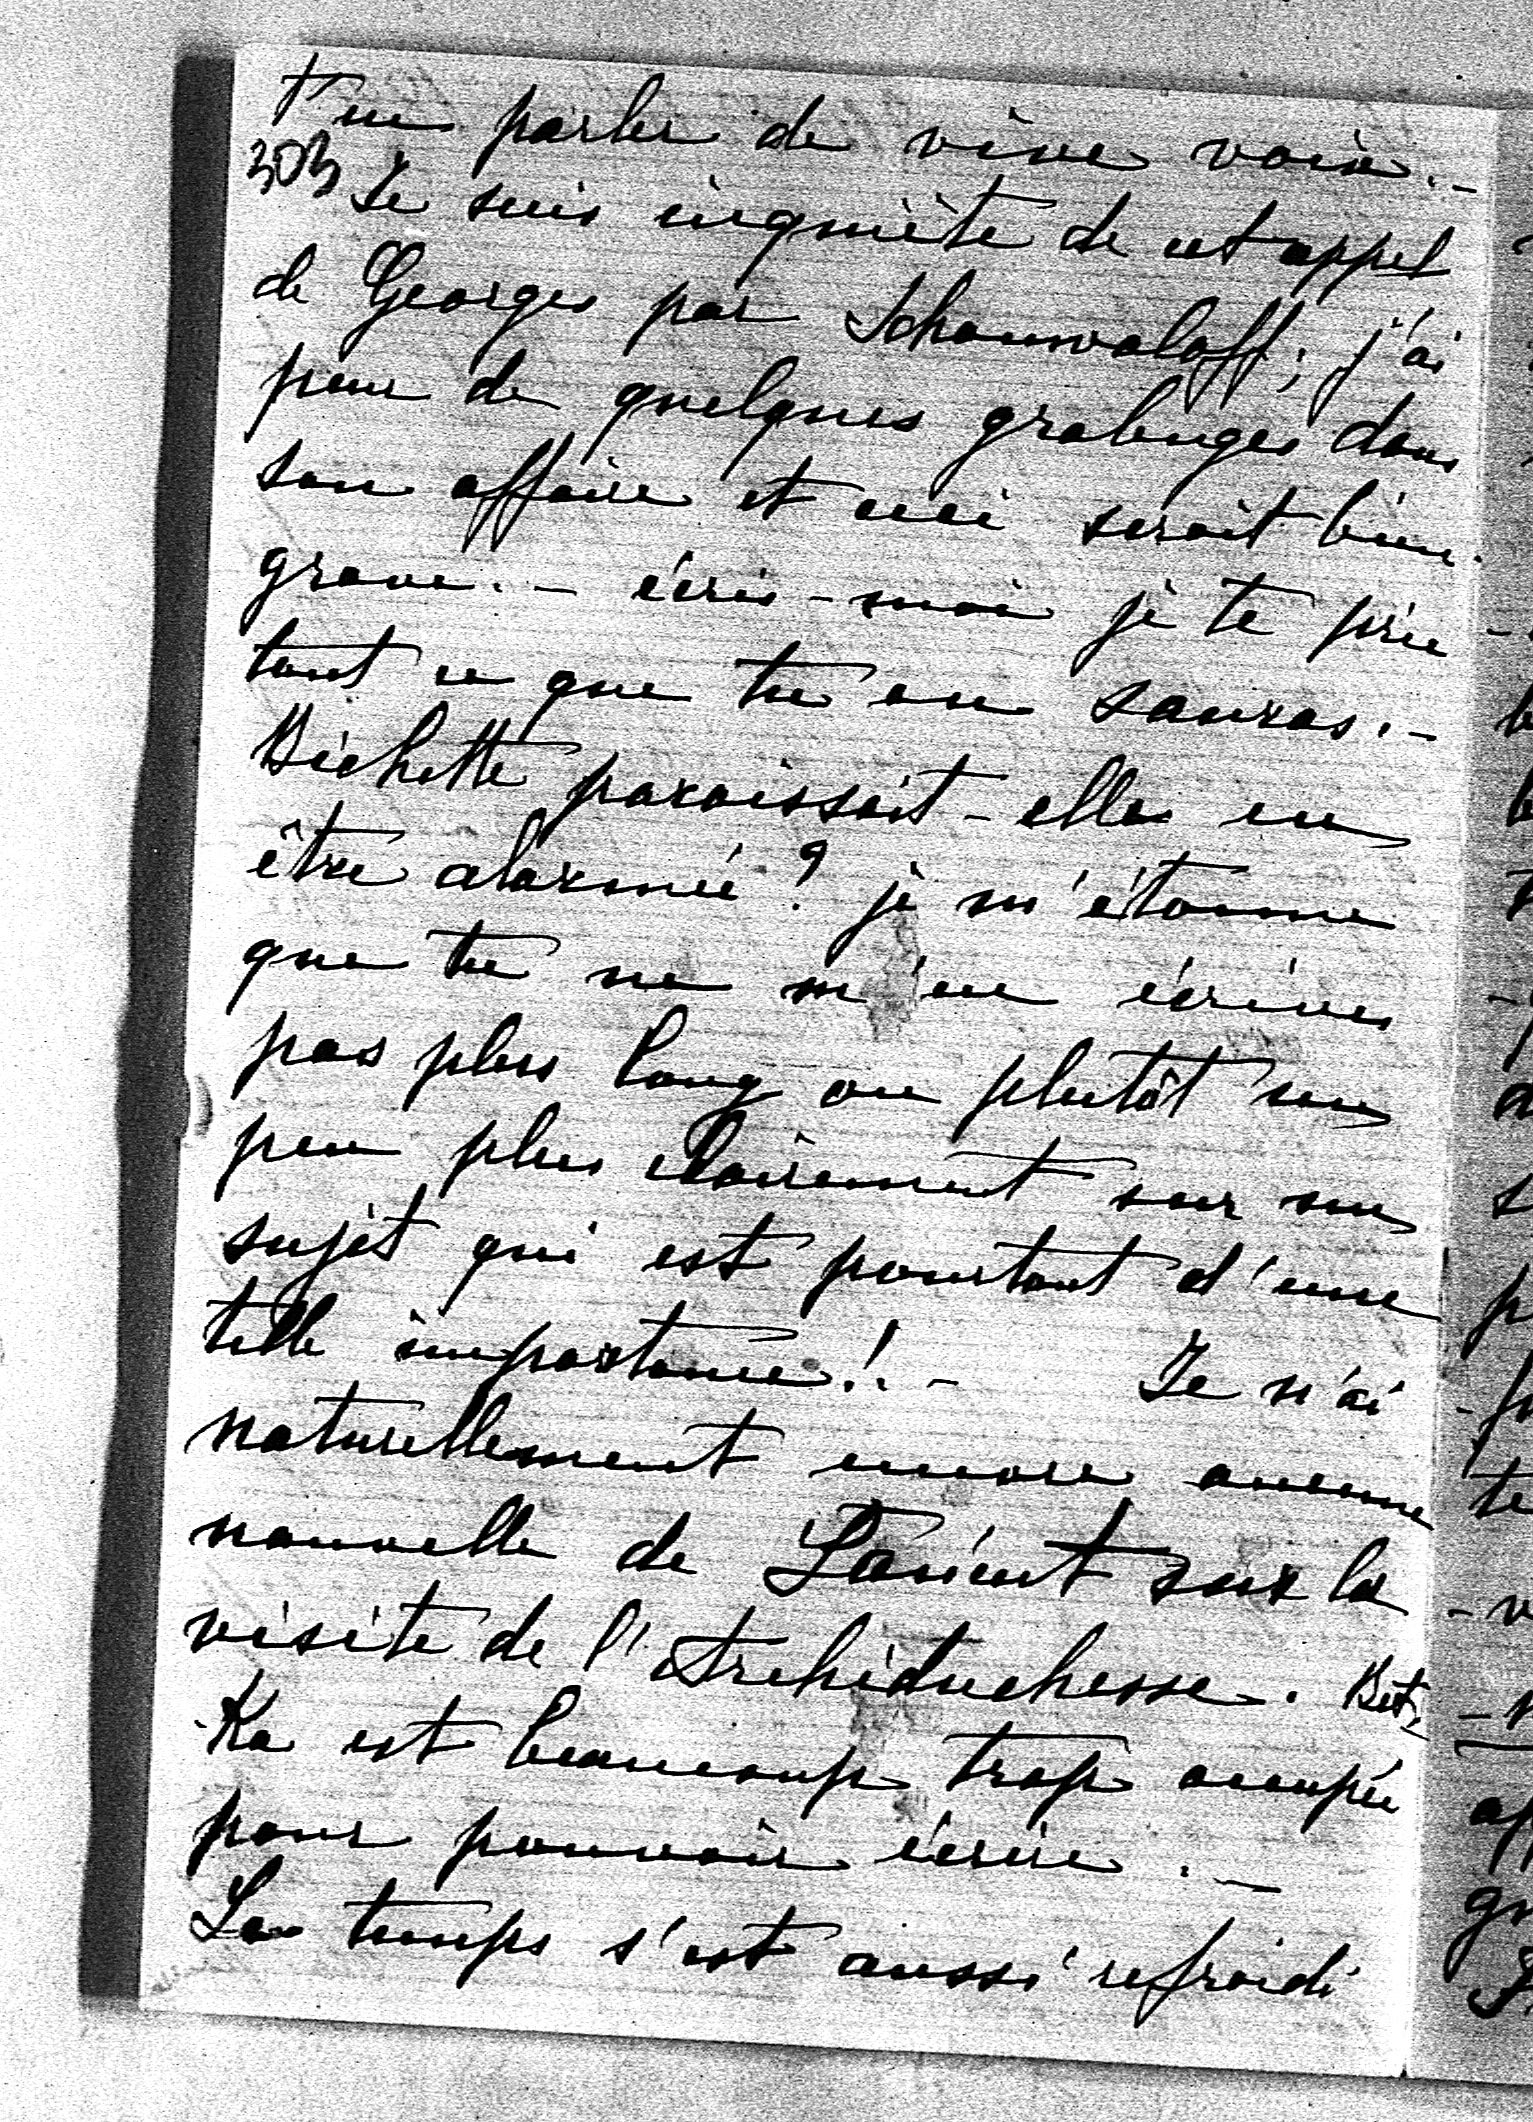 t'en parler de vive voix. -
303 Je suis inquiète de cet appel
de Georges par Schouwaloff; j'ai
peur de quelques grabuges dans
son affaire et ceci serait bien
grave. - écris-moi je te prie
tout ce que tu en sauras. -
Bichette paraissait-elle en
être alarmée? je m'étonne
que tu ne m'en écrives
pas plus long ou plutôt un
peu plus clairement sur un
sujet qui est pourtant d'une
telle importance! - Je n'ai
naturellement encore aucune
nouvelle de sur la
visite de l'Archiduchesse. Bet,
-Ka est beaucoup trop occupée
pour pouvoir écrire. -
Le temps s'est aussi refroidi